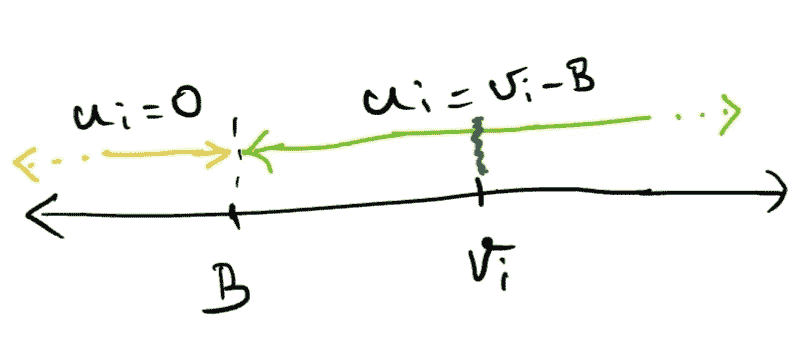 uᵢ = 0
uᵢ = vᵢ - B
B
vᵢ